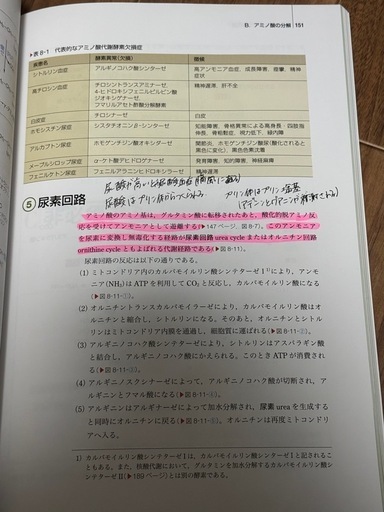 B. アミノ酸の分解 151
▶表 8-1 代表的なアミノ酸代謝酵素欠損症
疾患名 酵素異常(欠損) 徴候
シトルリン血症 アルギノコハク酸シンターゼ 高アンモニア血症，成長障害，痙攣，精神症状
高チロシン血症 チロシントランスアミナーゼ，4-ヒドロキシフェニルピルビン酸ジオキシゲナーゼ，フマリルアセト酢酸分解酵素 精神遅滞，肝不全
白皮症 チロシナーゼ 白皮
ホモシスチン尿症 シスタチオニンβ-シンターゼ 知能障害，骨格異常による高身長・四肢指伸長，骨粗鬆症，視力低下，緑内障
アルカプトン尿症 ホモゲンチジン酸オキシダーゼ 関節炎，ホモゲンチジン酸尿(酸化されると黒色に変化)，黒色色素沈着
メープルシロップ尿症 α-ケト酸デヒドロゲナーゼ 発育障害，知的障害，神経麻痺
フェニルケトン尿症 フェニルアラニンヒドロキシラーゼ 精神遅滞
尿酸が高いと
尿酸はプリン体からつくられる
プリン体はプリン塩基
5 尿素回路
アミノ酸のアミノ基は，グルタミン酸に転移されたあと，酸化的脱アミノ反
応を受けてアンモニアとして遊離する(▶147 ページ，図 8-7)。このアンモニア
を尿素に変換し無毒化する経路が尿素回路 urea cycle またはオルニチン回路
ornithine cycle ともよばれる代謝経路である(▶図 8-11)。
尿素回路の反応は以下の通りである。
(1) ミトコンドリア内のカルバモイルリン酸シンテターゼ I¹⁾により，アンモ
ニア(NH₃)は ATP を利用して CO₂ と反応し，カルバモイルリン酸になる
(▶図 8-11-①)。
(2) オルニチントランスカルバモイラーゼにより，カルバモイルリン酸はオ
ルニチンと縮合し，シトルリンになる。そのあと，オルニチンとシトル
リンはミトコンドリア内膜を通過し，細胞質に運ばれる(▶図 8-11-②)。
(3) アルギニノコハク酸シンテターゼにより，シトルリンはアスパラギン酸
と結合し，アルギニノコハク酸にかえられる。このとき ATP が消費され
る(▶図 8-11-③)。
(4) アルギニノスクシナーゼによって，アルギニノコハク酸が切断され，ア
ルギニンとフマル酸になる(▶図 8-11-④)。
(5) アルギニンはアルギナーゼによって加水分解され，尿素 urea を生成する
と同時にオルニチンに戻る(▶図 8-11-⑤)。オルニチンは再度ミトコンドリ
アへ入る。
1) カルバモイルリン酸シンテターゼ I は，カルバモイルリン酸シンターゼ I と記されるこ
ともある。また，核酸代謝において，グルタミンを加水分解するカルバモイルリン酸シ
ンテターゼ II(▶189 ページ)とは別の酵素である。